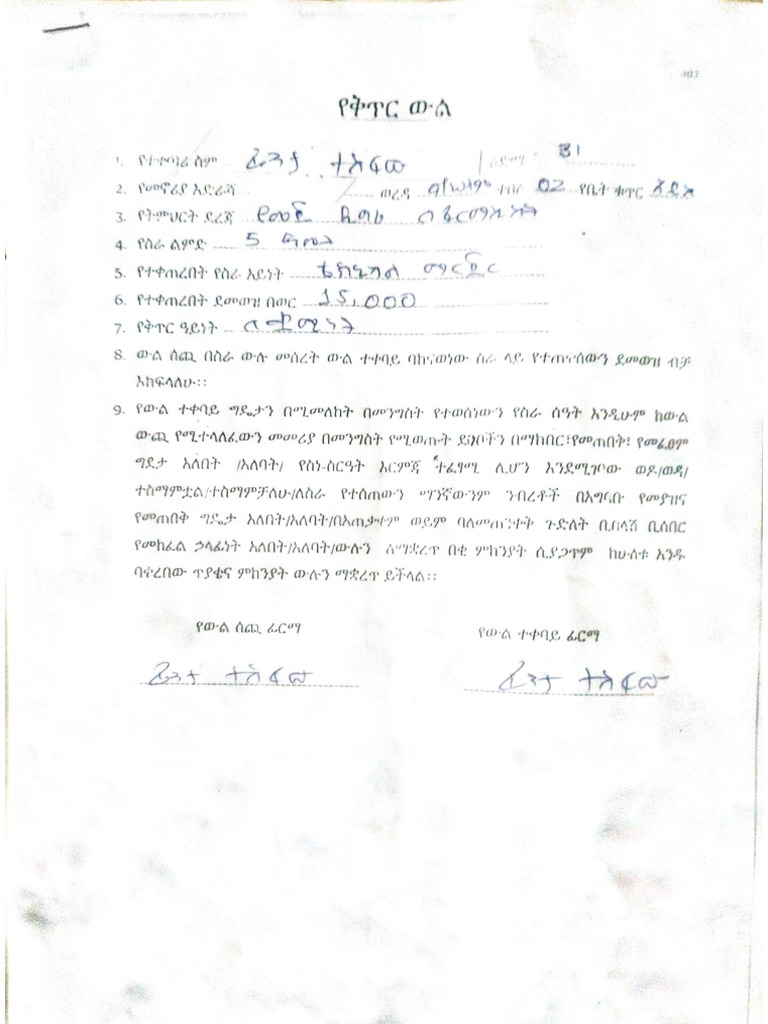 የቅጥር ውል
1. የተቀጣሪ ስም ፊንታ ተስፋው እድሜ 31
2. የመኖሪያ አድራሻ ወረዳ ቀበሌ 02 የቤት ቁጥር አዲስ
3. የትምህርት ደረጃ የመጀ ዲግሪ
4. የስራ ልምድ 5 ዓመት
5. የተቀጠረበት የስራ አይነት ቴክኒካል
6. የተቀጠረበት ደመወዝ በወር 15,000
7. የቅጥር ዓይነት በቋሚነት
8. ውል ሰጪ በስራ ውሉ መሰረት ውል ተቀባይ ባከናወነው ስራ ላይ የተጠናሰውን ደመወዝ ብቻ
እከፍላለሁ፡፡
9. የውል ተቀባይ ግዴታን በሚመለከት በመንግስት የተወሰነውን የስራ ሰዓት እንዲሁም ከውል
ውጪ የሚተላለፈውን መመሪያ በመንግስት የሚወጡት ደንቦችን በማክበር፣የመጠበቅ፣ የመፈፀም
ግደታ አለበት /አለባት/ የስነ-ስርዓት እርምጃ ተፈፃሚ ሊሆን እንደሚገባው ወዶ/ወዳ/
ተስማምቷል/ተስማምቻለሁ/ለስራ የተሰጠውን ማንኛውንም ንብረቶች በአግባቡ የመያዝና
የመጠበቅ ግዴታ አለበት/አለባት/በአጠቃቀም ወይም ባለመጠንቀቅ ጉድለት ቢበላሽ ቢሰበር
የመክፈል ኃላፊነት አለበት/አለባት/ውሉን ለማቋረጥ በቂ ምክንያት ሲያጋጥም ከሁለቱ አንዱ
ባቀረበው ጥያቄና ምክንያት ውሉን ማቋረጥ ይችላል፡፡
የውል ሰጪ ፊርማ የውል ተቀባይ ፊርማ
ፊንታ ተስፋው ፊንታ ተስፋው